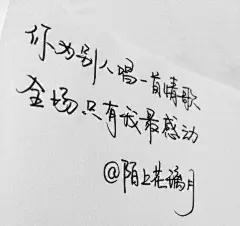 你为别人唱一首情歌
全场只有我最感动
@陌上茫漓月